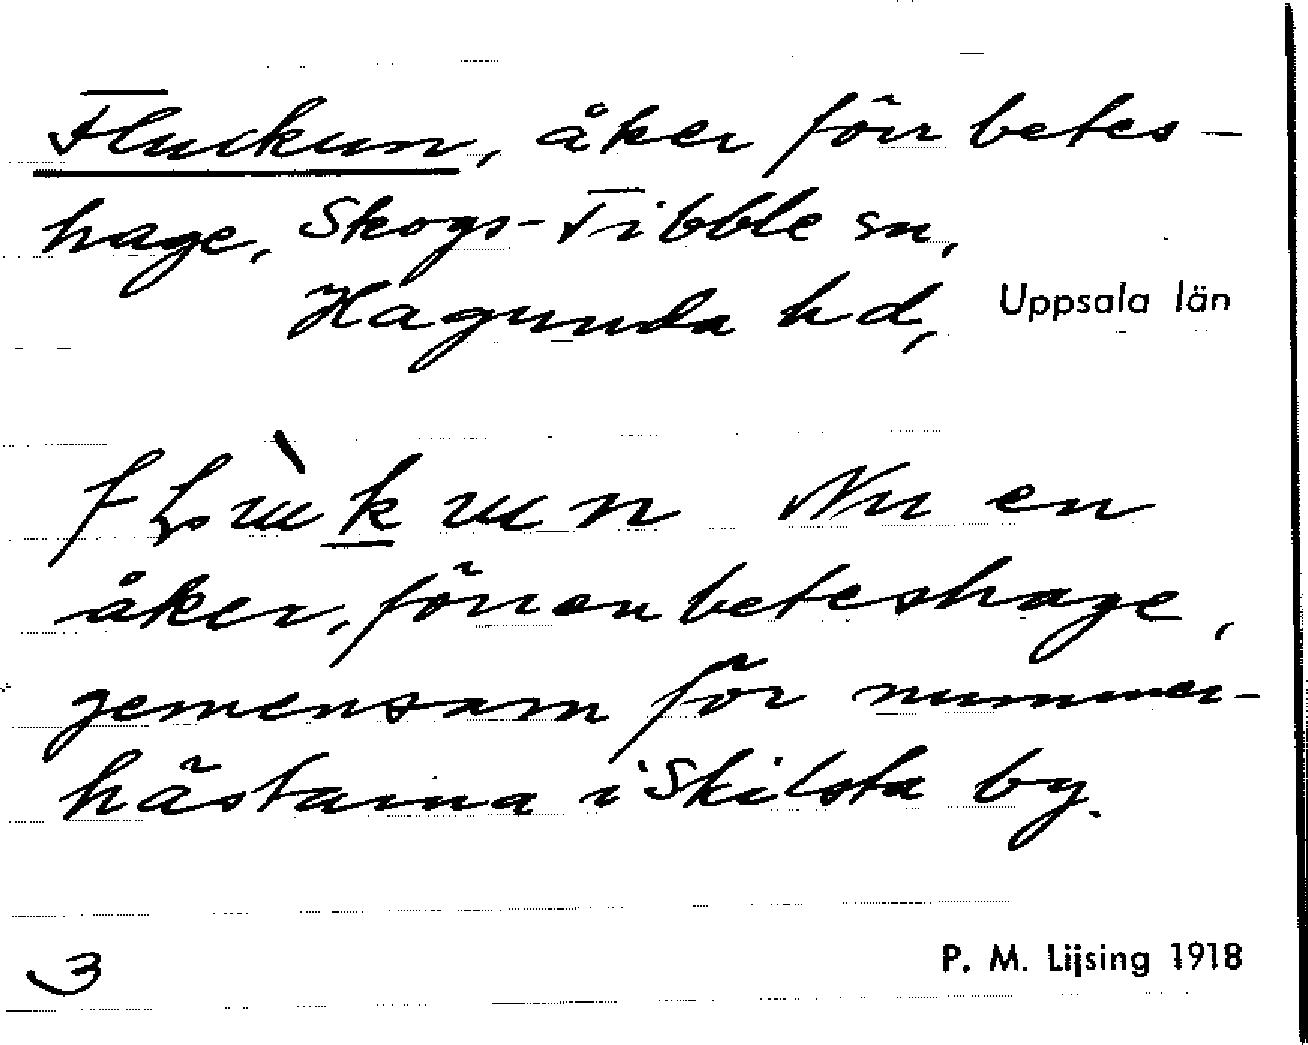 Fluckun, åker förr betes-
hage, Skogs-Tibble sn,
Hagunda hd, Uppsala län
åker, förr en beteshage,
gemensam för nummer-
hästarna i Skilsta by.
Nu en
3
P. M. Lijsing 1918